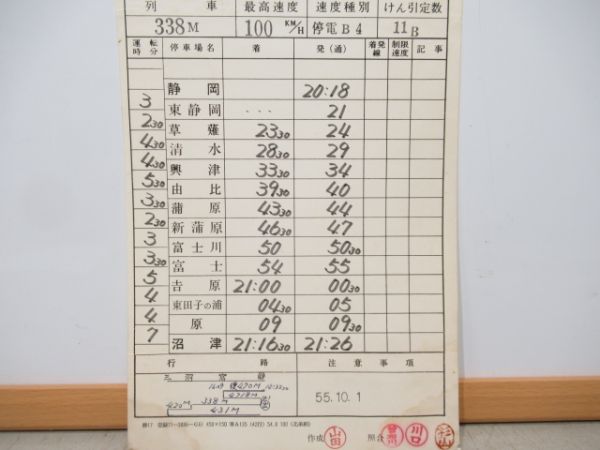 列車 最高速度 速度種別 けん引定数
338M 100 KM/H 停電B4 11B
運転時分 停車場名 着 発(通) 着発線 制限速度 記事
静岡 20:18
3 東静岡 ... 21
2 30 草薙 23 30 24
4 30 清水 28 30 29
4 30 興津 33 30 34
5 30 由比 39 30 40
3 30 蒲原 43 30 44
2 30 新蒲原 46 30 47
3 富士川 50 50 30
3 30 富士 54 55
5 吉原 21:00 00 30
4 東田子の浦 04 30 05
4 原 09 09 30
7 沼津 21:16 30 21:26
行路 注意事項
420M 338M
431M
55.10.1
作成 山田 照合 川口 杉山